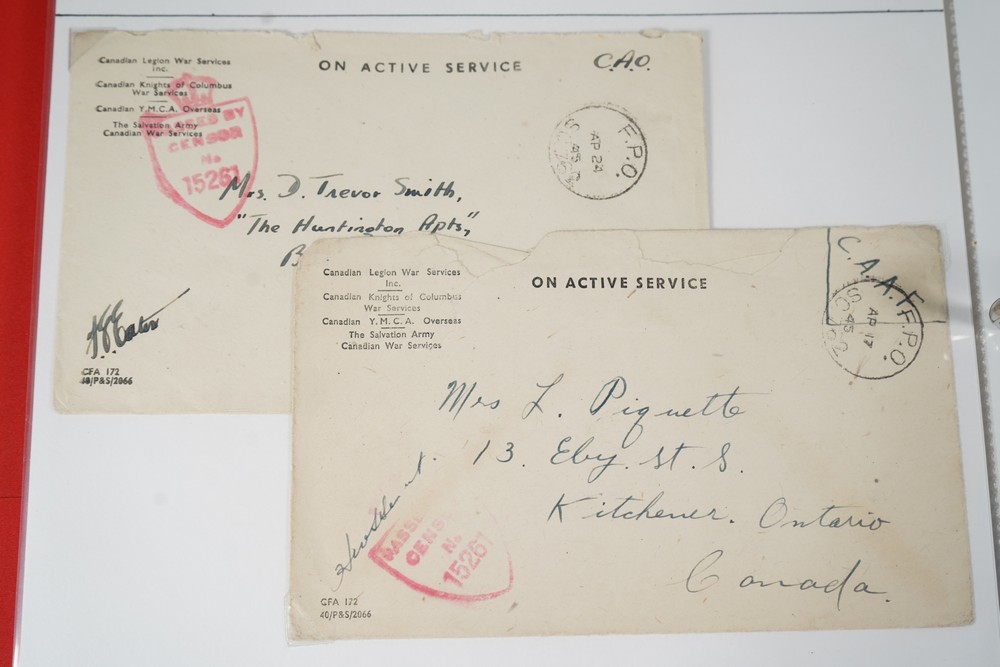 Canadian Legion War Services
Inc.
Canadian Knights of Columbus
War Services
Canadian Y.M.C.A. Overseas
The Salvation Army
Canadian War Services
ON ACTIVE SERVICE
C.A.O.
PASSED BY
CENSOR
No
15261
F.P.O.
AP 24
45
Mrs. D. Trevor Smith,
"The Huntington Apts,"
B
CFA 172
40/P&S/2066
Canadian Legion War Services
Inc.
Canadian Knights of Columbus
War Services
Canadian Y.M.C.A. Overseas
The Salvation Army
Canadian War Services
ON ACTIVE SERVICE
C.A.A.F.
F.P.O.
AP 17
45
Mrs L. Piquette
13. Eby. St. S.
Kitchener. Ontario
Canada.
PASSE
CENS
No
15261
CFA 172
40/P&S/2066